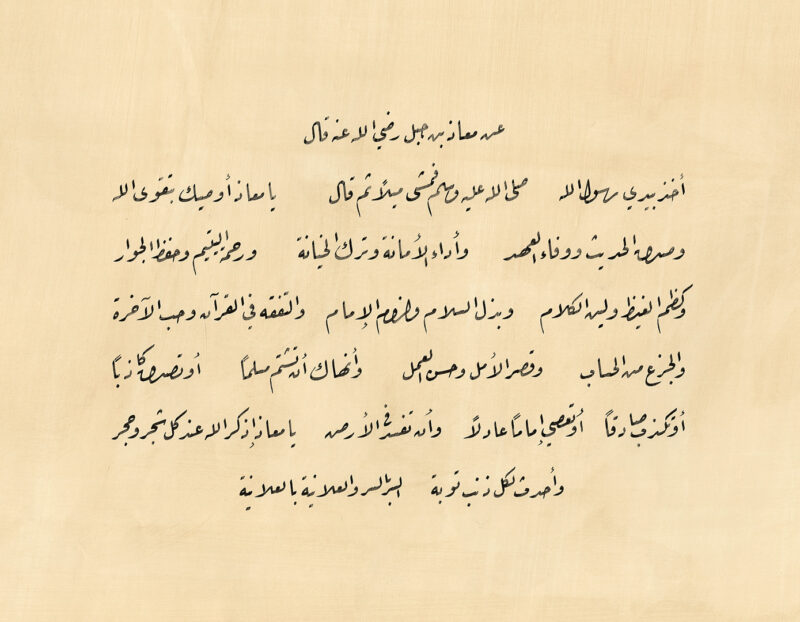 عن معاذ بن جبل رضي الله عنه قال
أخذ بيدي رسول الله صلى الله عليه وسلم فمشى ميلاً ثم قال يا معاذ أوصيك بتقوى الله
وصدق الحديث ووفاء العهد وأداء الأمانة وترك الخيانة ورحمة اليتيم وحفظ الجوار
وكظم الغيظ ولين الكلام وبذل السلام ولزوم الإمام والتفقه في القرآن وحب الآخرة
والجزع من الحساب وقصر الأمل وحسن العمل وأنهاك أن تشتم مسلماً أو تصدق كاذباً
أو تكذب صادقاً أو تعصي إماماً عادلاً وأن تفسد في الأرض يا معاذ إذكر الله عند كل شجر وحجر
وأحدث لكل ذنب توبة السر بالسر والعلانية بالعلانية